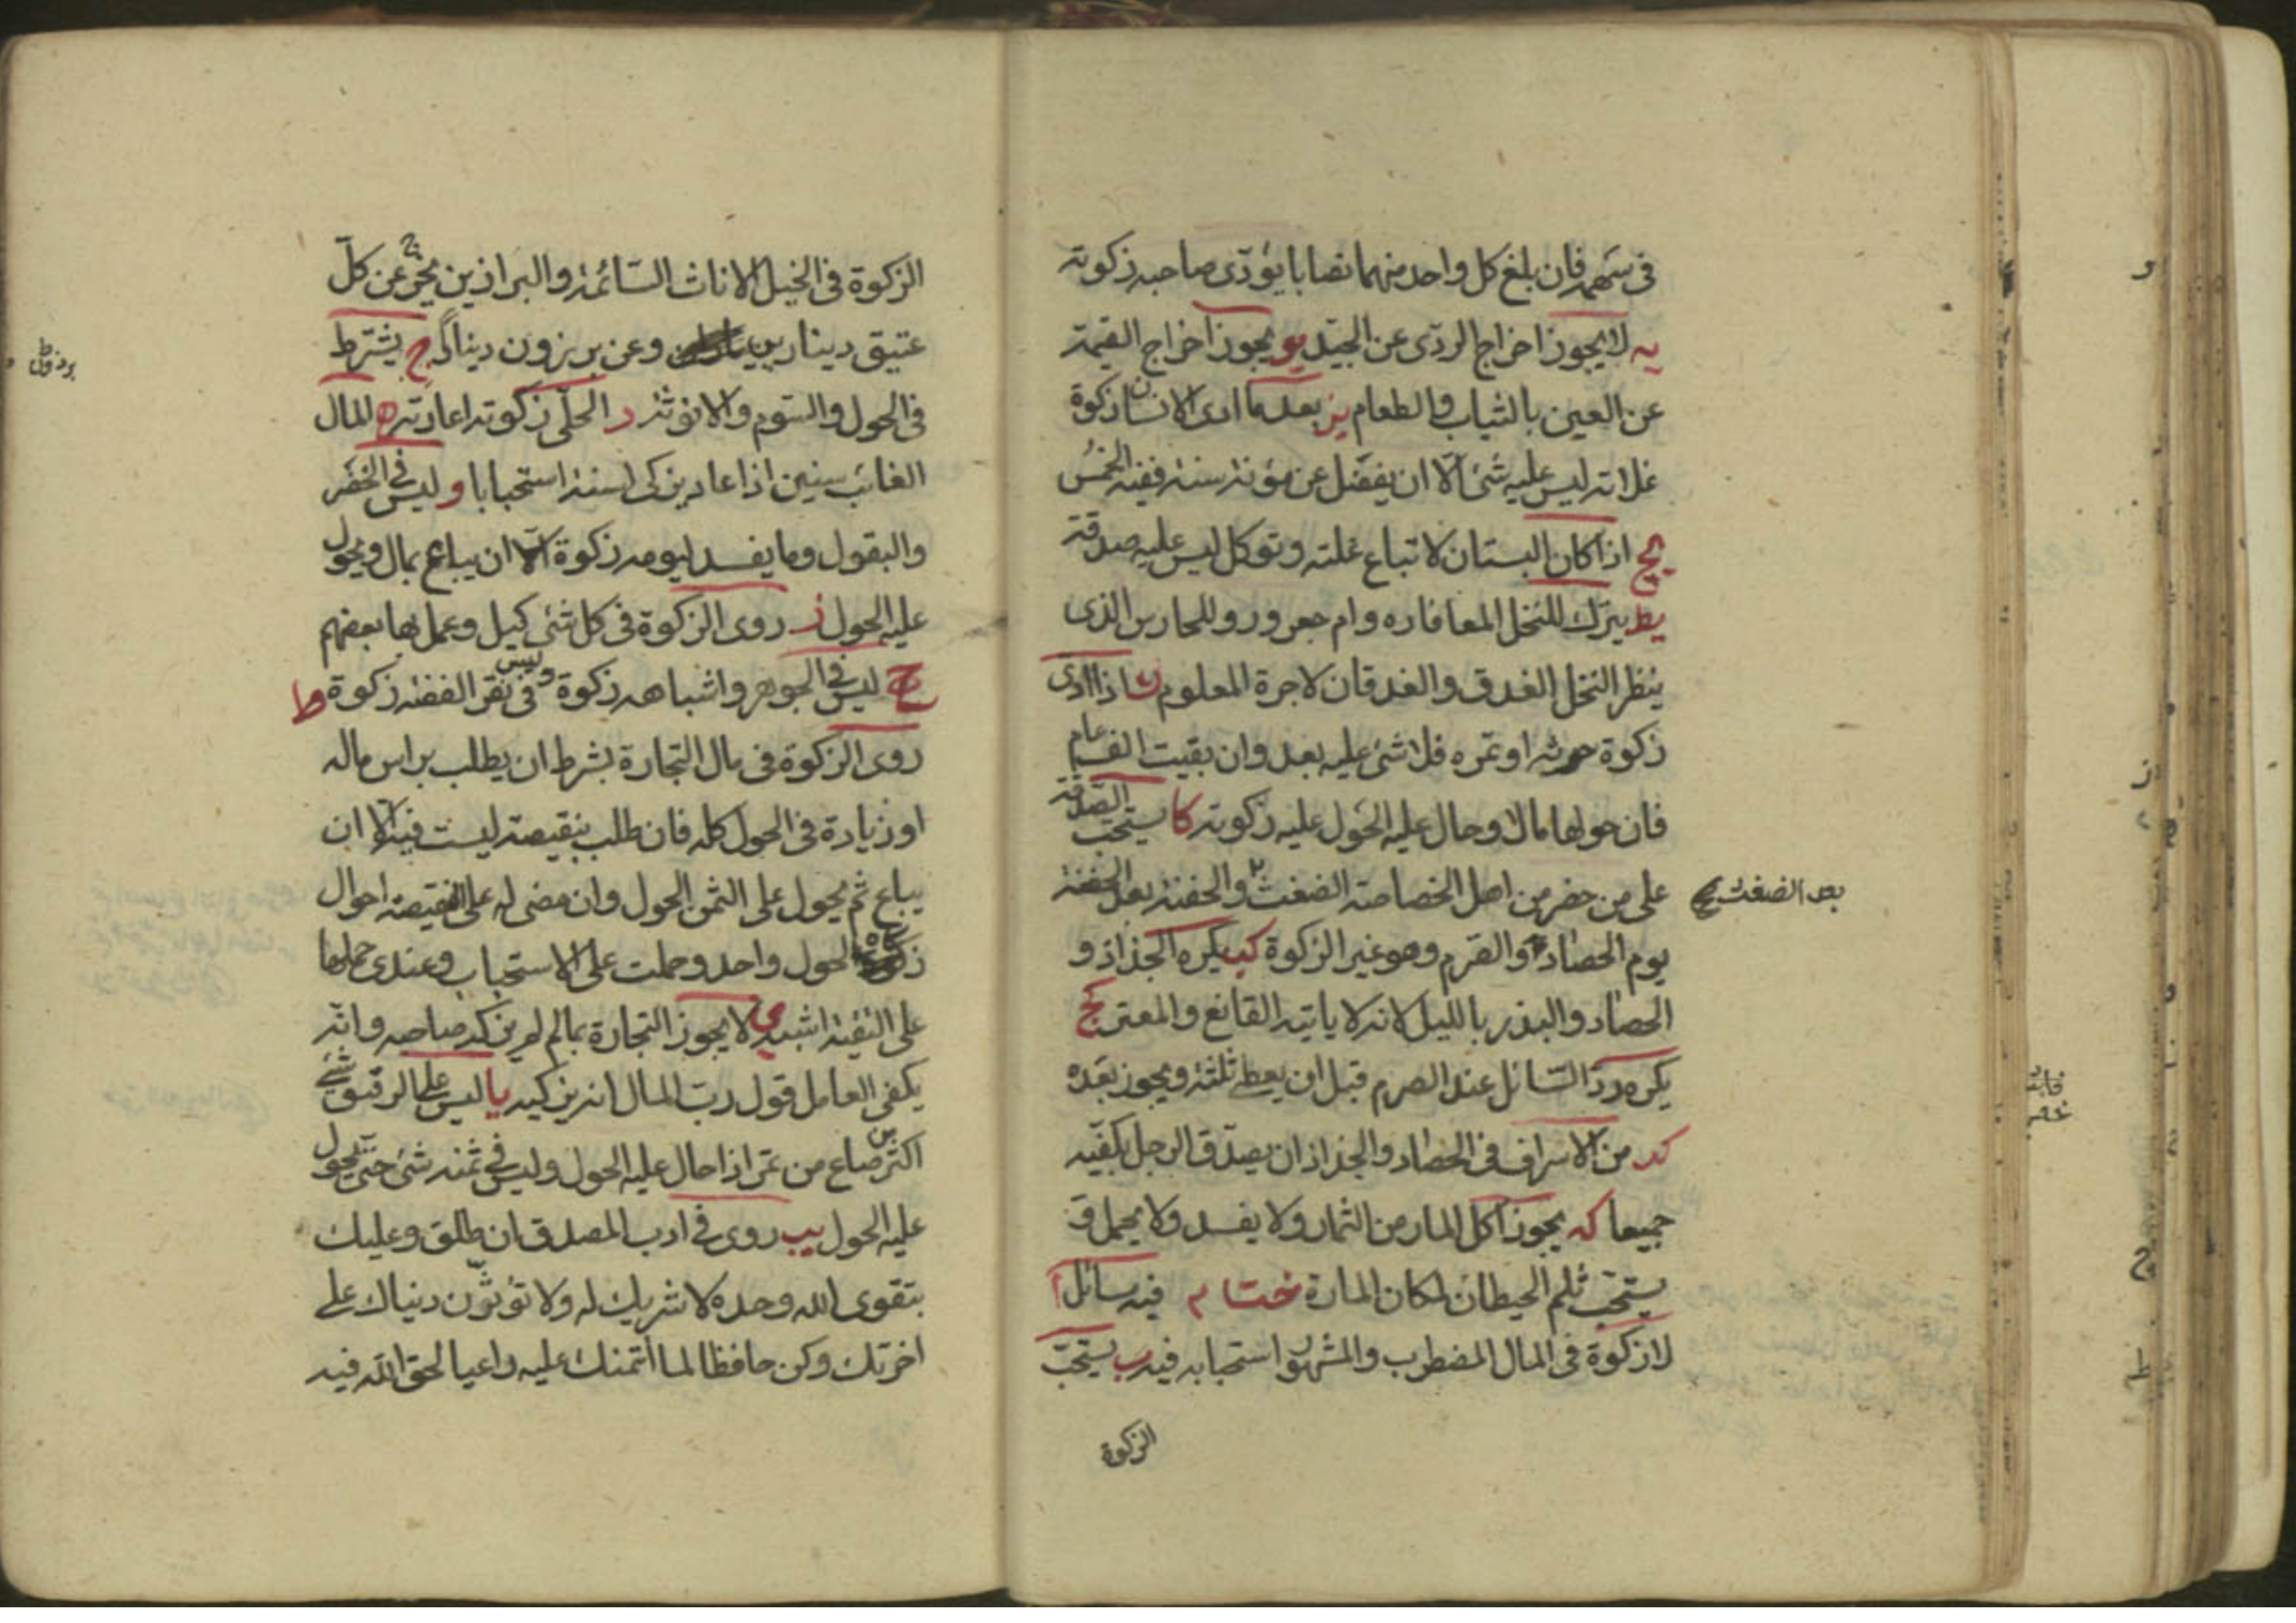 فى سهمه فان بلغ كل واحد منهما نصابا يؤدى صاحبه زكوته
يه لا يجوز اخراج الردى عن الجيّد يو يجوز اخراج القيمة
عن العين بالثياب والطعام يز بعد ما ادى الانسان زكوة
غلاته ليس عليه شئ الّا ان يفضل عن مؤنة سنته ففيه الخمس
يح اذا كان البستان لا تباع غلته وتوكل ليس عليه صدقة
يط يترك للنخل المعافاره وام جعرور وللحارس الذى
ينظر النخل الغدق والغدقان لاجرة المعلوم ك اذا ادى
زكوة حرثه او تمره فلا شئ عليه بعد وان بقيت الف عام
فان حولها مالا وحال عليه الحول عليه زكوته كا يستحب الصدقة
على من حضر من اهل الخصاصة الضغث والحفنة بعد الحفنة
بعد الضغث
يوم الحصاد والصرم وهو غير الزكوة كب يكره الجذاذ و
الحصاد والبذر بالليل لانه لا ياتيه القانع والمعتر كج
يكره ردّ السّائل عند الصرم قبل ان يعطى ثلثة ويجوز بعده
كد من الاسراف فى الحصاد والجذاذ ان يصدّق الرجل بكفّيه
جميعا كه يجوز اكل المار من الثمار ولا يفسد ولا يحمل و
يستحب ثلم الحيطان لمكان المارة ختام فيه مسائل ا
لا زكوة فى المال المضطرب والمشهور استحبابه فيه ب يستحبّ
الزكوة
الزكوة فى الخيل الاناث السّائمة والبراذين يخرج عن كلّ
عتيق دينارين وعن بريزون دينارا ج يشترط
برذون ط
فى الحول والسّوم والانوثة د الحلّى زكوته اعارته ه المال
الغائب سنين اذا عاد يزكى لسنة استحبابا و ليس فى الخضر
والبقول وما يفسد ليومه زكوة الّا ان يباع بمال ويحول
عليه الحول ز روى الزكوة فى كل شئ كيل وعمل بها بعضهم
ح ليس فى الجوهر واشباهه زكوة وليس فى نقر الفضة زكوة ط
روى الزكوة فى مال التجارة بشرط ان يطلب براس ماله
او زيادة فى الحول كله فان طلب بنقيصة ليست فيه الّا ان
يباع ثم يحول على الثمن الحول وان مضى له على النقيصة احوال
زكاه لحول واحد وحملت على الاستحباب وعندى حملها
على التقية اشبه ى لا يجوز التجارة بمال لم يزكه صاحبه وانّه
يكفى العامل قول ربّ المال انه يزكيه يا ليس على الرقيق شئ
اكثر من صاع من تمر اذا حال عليه الحول وليس فى ثمنه شئ حتى يحول
عليه الحول يب روى فى ادب المصدق ان طلق وعليك
بتقوى الله وحده لا شريك له ولا تؤثرن دنياك على
اخرتك وكن حافظا لما ائتمنتك عليه راعيا لحق الله فيه